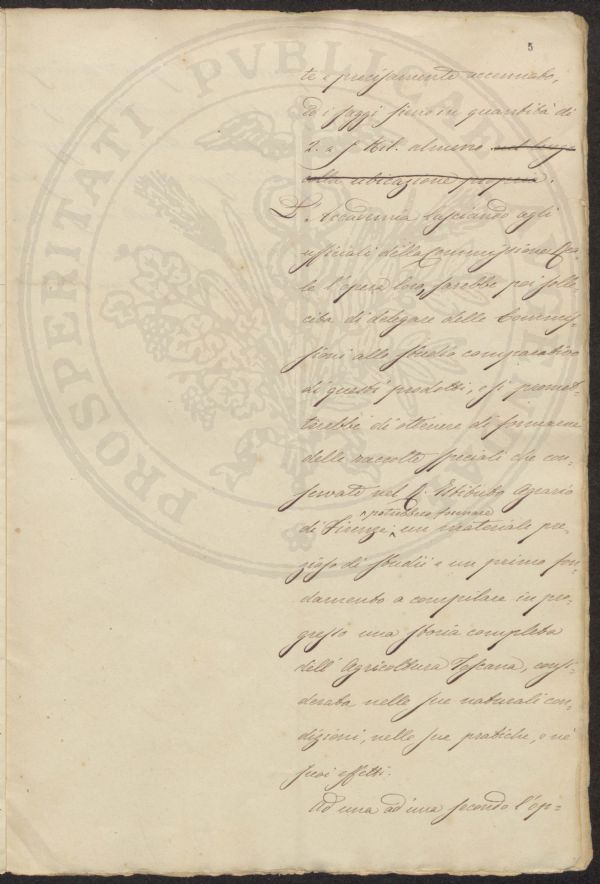 5
te e precisamente accennato,
se i saggi sieno in quantità di
2. a 5 Kil. almeno. nel luogo
alla ubicazione propria.
L'Accademia lasciando agli
ufficiali della Commissione Rea-
le l'opera loro, sarebbe poi solle-
cita di delegare delle Commis-
sioni allo studio comparativo
di questi prodotti, e si promet-
terebbe di ottenere di formarne
delle raccolte speciali che con-
servate nel R. Istituto Agrario
potrebbero formare
di Firenze, un materiale pre-
zioso di studii e un primo fon-
damento a compilare in pro-
gresso una storia completa
dell'Agricoltura Toscana, consi-
derata nelle sue naturali con-
dizioni, nelle sue pratiche, e nè
suoi effetti.
Ad una ad una secondo l'op-
PROSPERITATI PVBLICAE